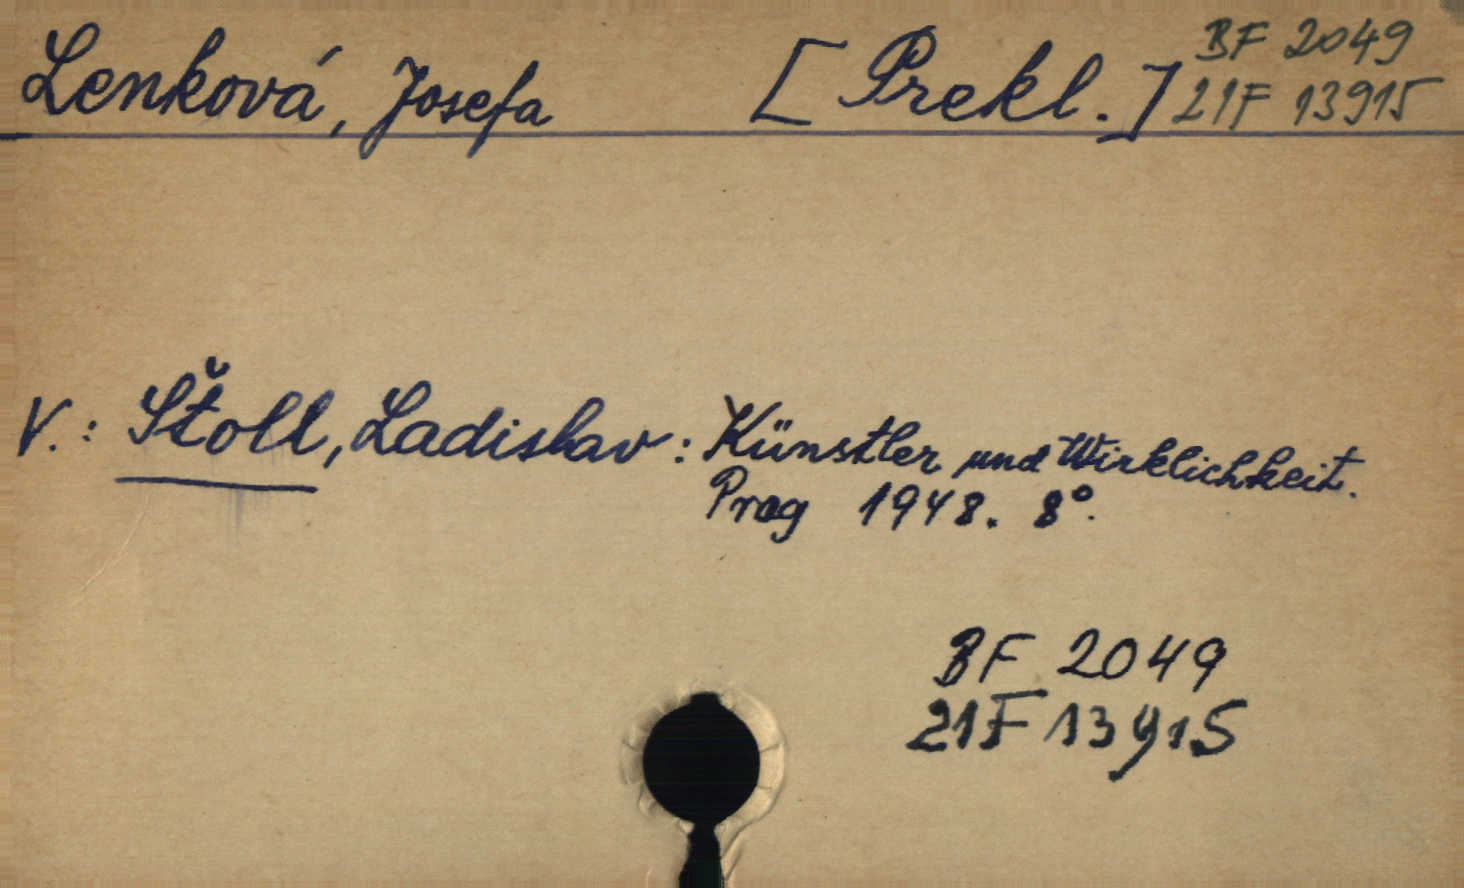 Lenková, Josefa [Prekl.] BF 2049
21F 13915
V.: Štoll, Ladislav: Künstler und Wirklichkeit.
Prag 1948. 8°.
BF 2049
21F 13915